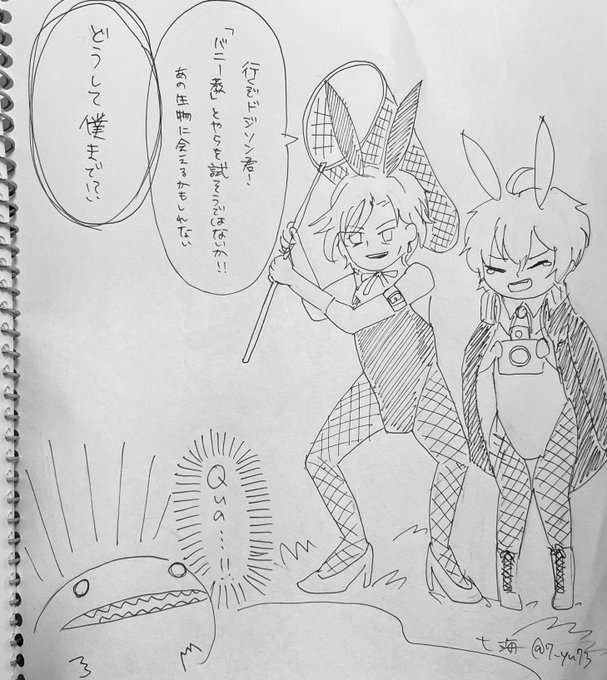 行くぞドジソン君!
「バニー教」とやらを試そうではないか!!
あの生物に会えるかもしれない
どうして僕まで!?
Qua…!!
七海 @7_yu73